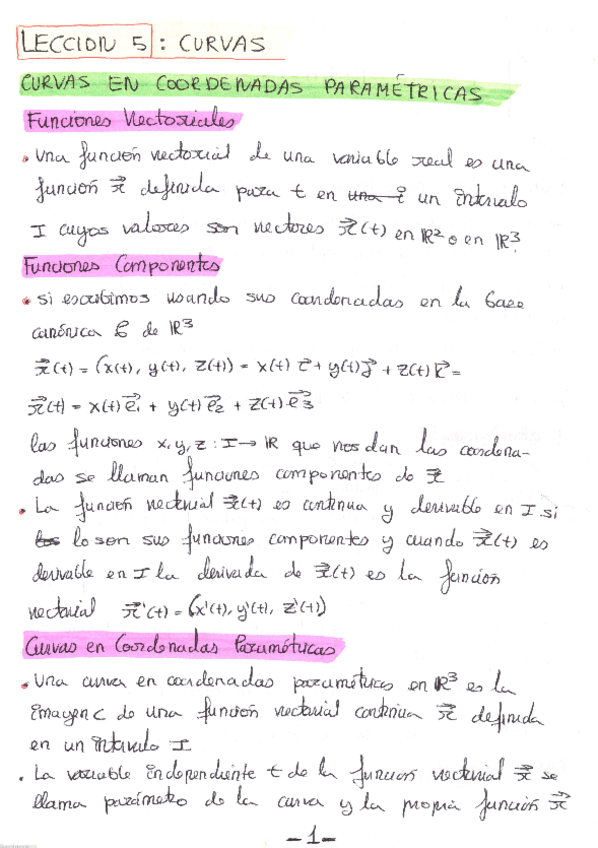 LECCION 5 : CURVAS
CURVAS EN COORDENADAS PARAMÉTRICAS
Funciones Vectoriales
• Una función vectorial de una variable real es una
función r⃗ definida para t en un intervalo
I cuyos valores son vectores r⃗(t) en ℝ² o en ℝ³.
Funciones Componentes
• Si escribimos usando sus coordenadas en la base
canónica C de ℝ³
r⃗(t) = (x(t), y(t), z(t)) = x(t) i⃗ + y(t) j⃗ + z(t) k⃗ =
r⃗(t) = x(t) e⃗₁ + y(t) e⃗₂ + z(t) e⃗₃
las funciones x, y, z : I → ℝ que nos dan las coordena-
das se llaman funciones componentes de r⃗
• La función vectorial r⃗(t) es continua y derivable en I si
lo son sus funciones componentes y cuando r⃗(t) es
derivable en I la derivada de r⃗(t) es la función
vectorial r⃗'(t) = (x'(t), y'(t), z'(t))
Curvas en Coordenadas Paramétricas
• Una curva en coordenadas paramétricas en ℝ³ es la
imagen C de una función vectorial continua r⃗ definida
en un intervalo I
• La variable independiente t de la función vectorial r⃗ se
llama parámetro de la curva y la propia función r⃗
- 1 -